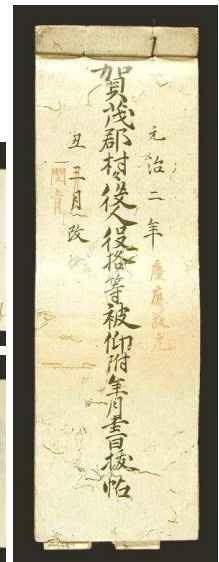 元治二年 慶應改元
賀茂郡村々役人役格等被仰附年月書拔帖
丑 五月改
閏